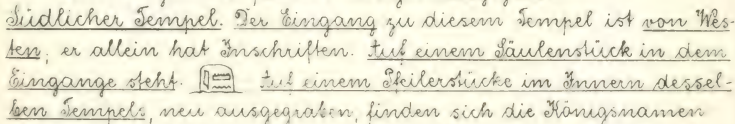 Südlicher Tempel. Der Eingang zu diesem Tempel ist von Wes-
ten, er allein hat Inschriften. Auf einem Säulenstück in dem
Eingange steht. Auf einem Pfeilerstücke im Innern dessel-
ben Tempels, neu ausgegraben, finden sich die Königsnamen